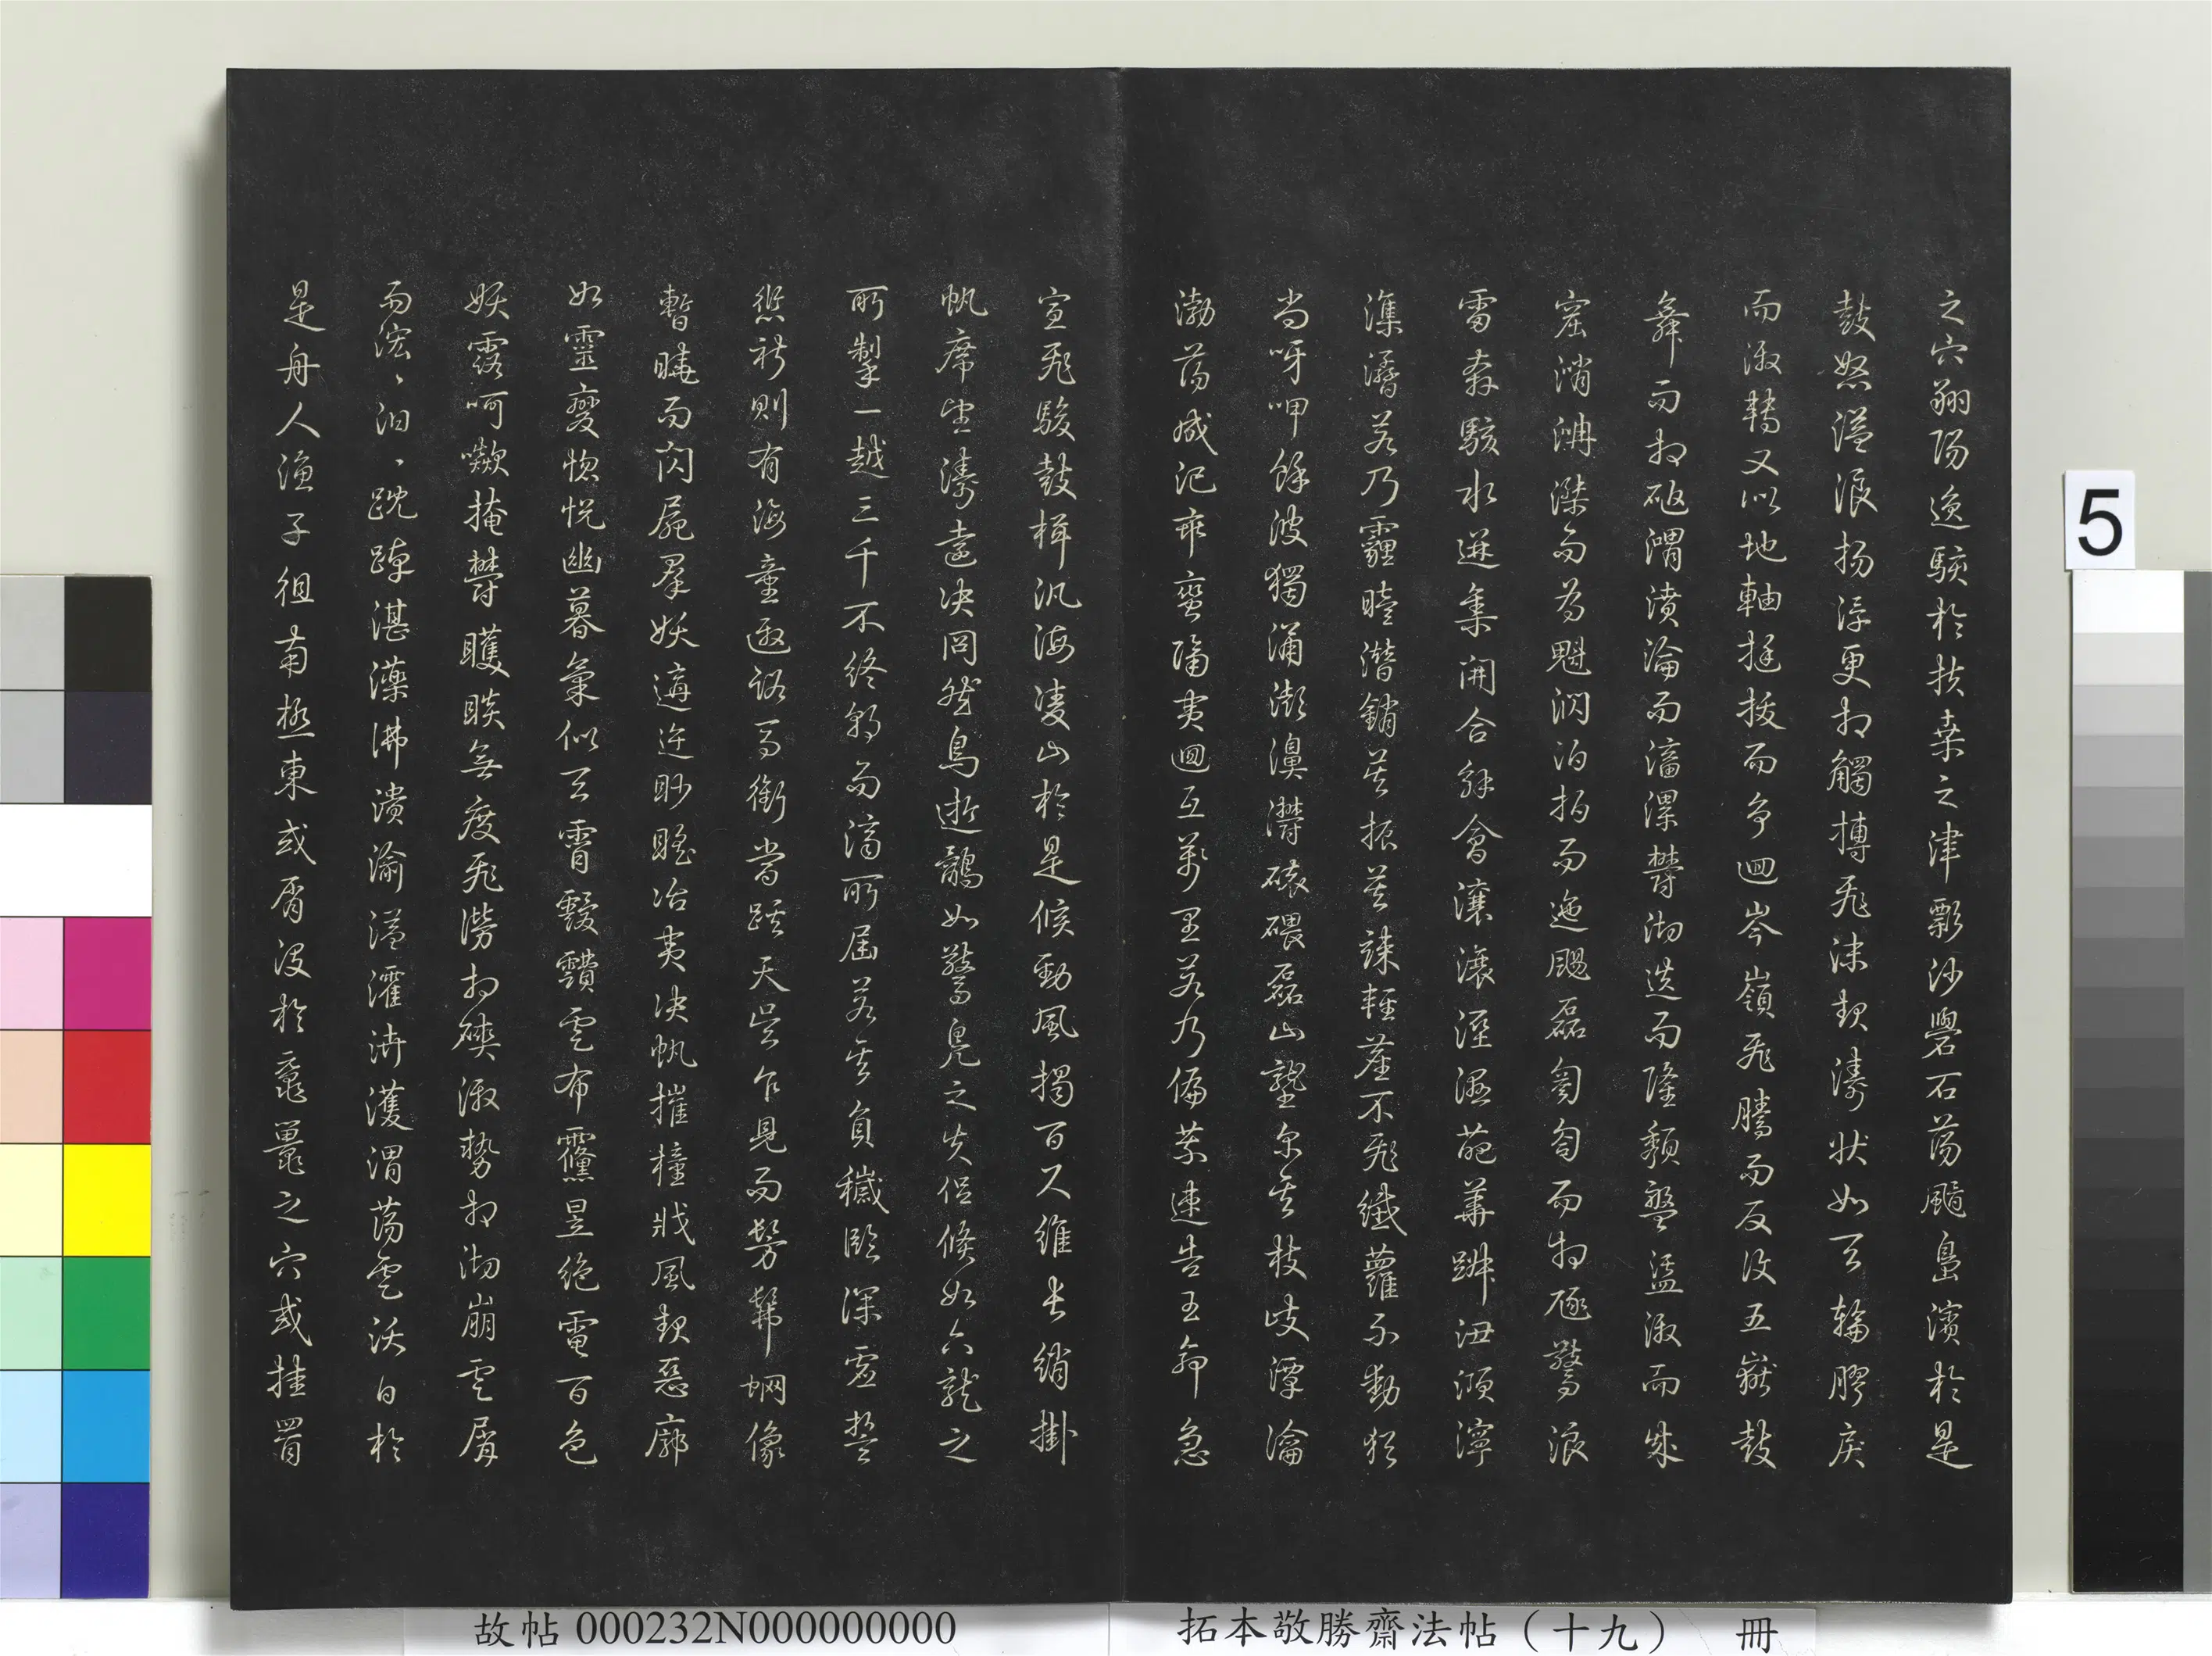 之穴翔陽逸駭於扶桑之津彯沙礐石蕩颵島濱於是
鼓怒溢浪揚浮更相觸摶飛沫起濤狀如天輪膠戾
而激轉又似地軸挺拔而爭迴岑嶺飛騰而反復五嶽鼓
舞而相磓渭濆淪而滀漯鬱沏迭而隆頹盤盓激而成
窟㴥㴸滐而為魁泊柏而迤颺磊匒匌而相豗驚浪
雷奔駭水迸集開合解會瀼瀼溼溼葩華踧沑澒濘
潗㵫若乃霾曀潛銷莫振莫竦輕塵不飛纖蘿不動猶
尚呀呷餘波獨涌澎濞灪䃶碨磊山壟爾其枝岐潭瀹
渤蕩成汜乖蠻隔夷迴互萬里若乃偏荒速告王命急
宣飛駿鼓楫汎海淩山於是候勁風揭百尺維長綃掛
帆席望濤遠決冏然鳥逝鷸如驚鳧之失侶倏如六龍之
所掣一越三千不終朝而濟所屆若其負穢臨深虛誓
愆祈則有海童邀路馬銜當蹊天吳乍見而髣髴蝄像
暫曉而閃屍羣妖遘迕眇𥇒冶夷決帆摧橦戕風起惡廓
如靈變惚怳幽暮氣似天霄靉靅雲布䨹昱絕電百色
妖露呵㗵掩鬱矆睒無度飛澇相磢激勢相沏崩雲屑
雨浤、汩、䟴踔湛藥沸潰渝溢瀖泋濩渭蕩雲沃日於
是舟人漁子徂南極東或屑沒於黿鼉之穴或挂罥
5
故帖 000232N000000000 拓本敬勝齋法帖（十九） 冊